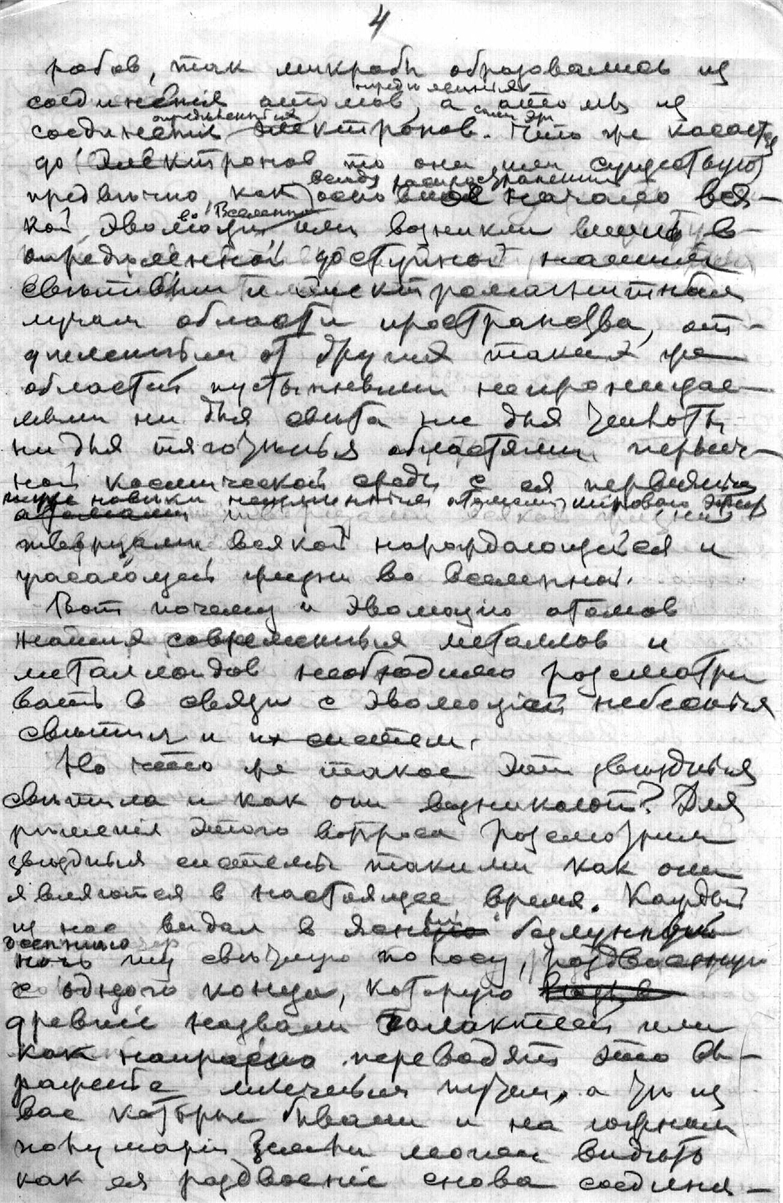 4
робов, так микробы образовались из
соединения атомов, а атомы из
соединения электронов. Что же касается
до электронов то они или существуют
предвечно, как основное начало вся-
кой эволюции или возникли лишь в
определенной доступной нашим
световым и электромагнитным
лучам области пространства, от-
деленным от других таких же
областей пустынными непроницае-
мыми ни для света ни для теплоты
ни для тяготенья областями первич-
ной космической среды с ея
мирового эфира
творцами всякой нарождающейся и
угасающей жизни во вселенной.
Вот почему и эволюцию атомов
наших современных металлов и
металлоидов необходимо розсматри
вать в связи с эволюцией небесных
светил и их систем.
Но что же такое эти звездныя
светила и как они возникают? Для
решения этого вопроса розсмотрим
звездныя системы такими как они
являются в настоящее время. Каждый
из нас видал в безлунный
ночь ту светлую полосу, роздвоенную
с одного конца, которую
древние назвали Галактией или
как напрасно переводят это вы-
ражение млечным путем, а те из
вас которые бывали и на южном
полушарии земли могли видеть
как ея роздвоение снова соединя-